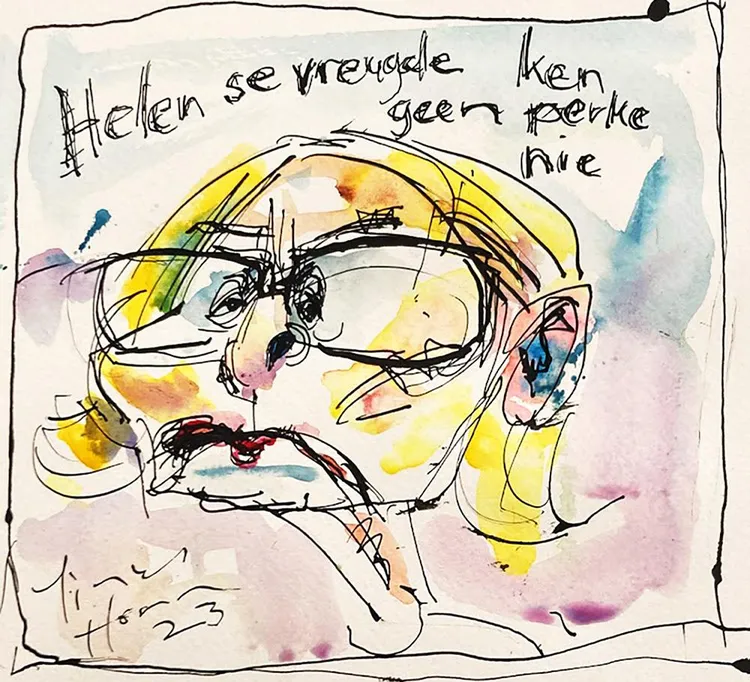 Helen se vreugde ken
geen perke
nie
23